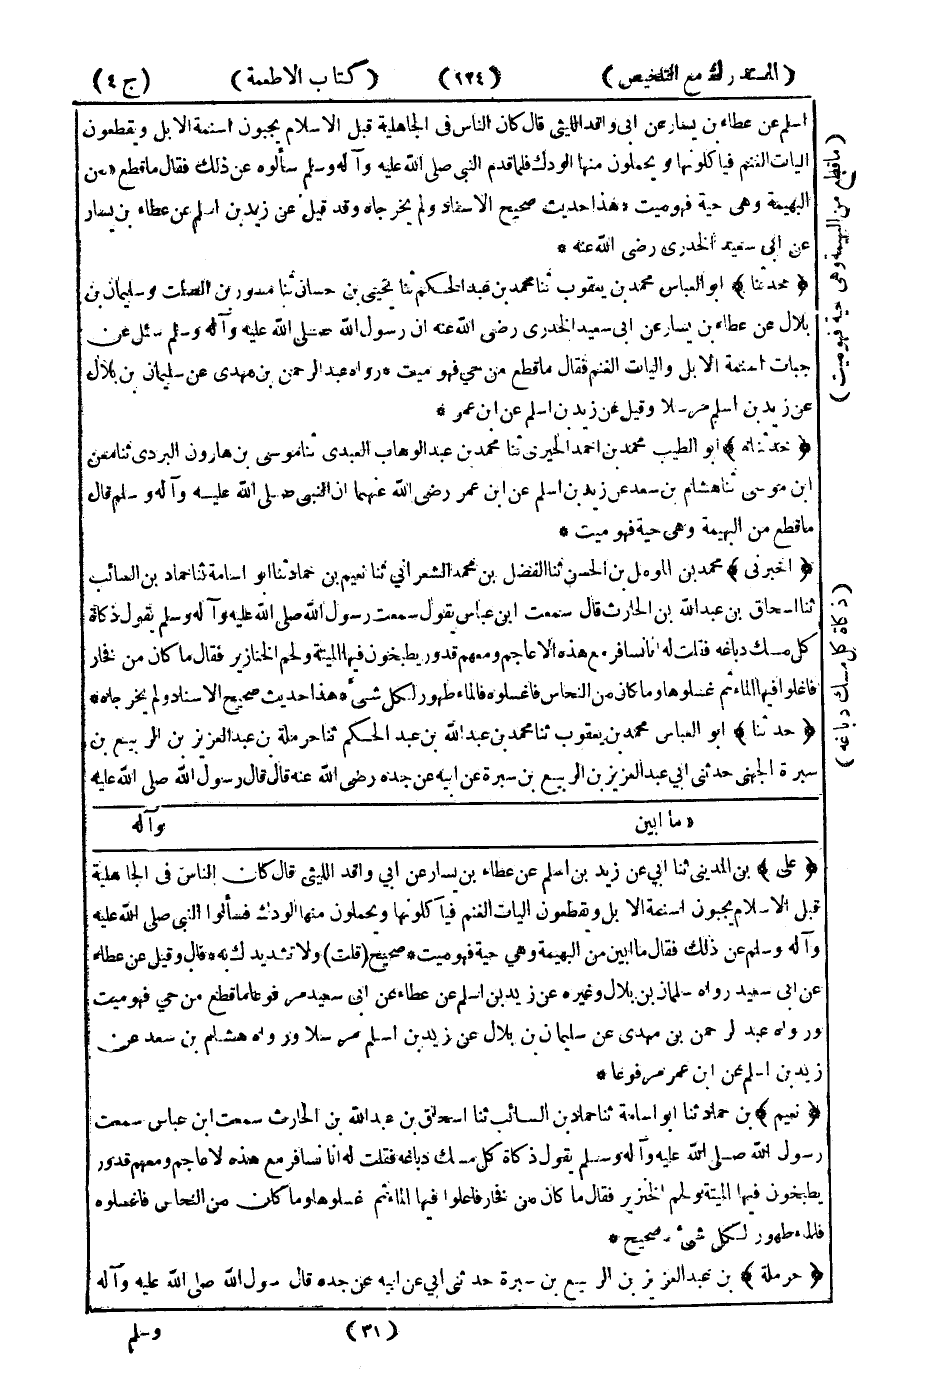 (المستدرك مع التلخيص) (١٢٤) (كتاب الاطعمة) (ج ٤)
اسلم عن عطاء بن يسار عن ابى واقد الليثى قال كان الناس فى الجاهلية قبل الاسلام يجبون اسنمة الابل ويقطعون
اليات الغنم فيأكلونها ويحملون منها الودك فلما قدم النبى صلى الله عليه وآله وسلم سألوه عن ذلك فقال ما قطع من
البهيمة وهى حية فهو ميت * هذا حديث صحيح الاسناد ولم يخرجاه وقد قيل عن زيد بن اسلم عن عطاء بن يسار
عن ابى سعيد الخدرى رضى الله عنه *
﴿ حدثنا ﴾ ابو العباس محمد بن يعقوب ثنا محمد بن عبد الحكم ثنا يحيى بن حسان ثنا مسور بن الصلت وسليمان بن
بلال عن عطاء بن يسار عن ابى سعيد الخدرى رضى الله عنه ان رسول الله صلى الله عليه وآله وسلم سئل عن
جبات اسنمة الابل واليات الغنم فقال ما قطع من حي فهو ميت * رواه عبد الرحمن بن مهدى عن سليمان بن بلال
عن زيد بن اسلم مرسلا وقيل عن زيد بن اسلم عن ابن عمر *
﴿ حدثناه ﴾ ابو الطيب محمد بن احمد الحيرى ثنا محمد بن عبد الوهاب العبدى ثنا موسى بن هارون البردى ثنا معن
ابن موسى ثنا هشام بن سعد عن زيد بن اسلم عن ابن عمر رضى الله عنهما ان النبى صلى الله عليه وآله وسلم قال
ما قطع من البهيمة وهى حية فهو ميت *
﴿ اخبرنى ﴾ محمد بن المؤمل بن الحسن ثنا الفضل بن محمد الشعرانى ثنا نعيم بن حماد ثنا ابو اسامة ثنا حماد بن السائب
ثنا اسحاق بن عبد الله بن الحارث قال سمعت ابن عباس يقول سمعت رسول الله صلى الله عليه وآله وسلم يقول ذكاة
كل مسك دباغه فقلت له انا نسافر مع هذه الاعاجم ومعهم قدور يطبخون فيها الميتة ولحم الخنازير فقال ما كان من فخار
فاغلوا فيها الماء ثم غسلوها وما كان من النحاس فاغسلوه فالماء طهور لكل شئ * هذا حديث صحيح الاسناد ولم يخرجاه *
﴿ حدثنا ﴾ ابو العباس محمد بن يعقوب ثنا محمد بن عبد الله بن عبد الحكم ثنا حرملة بن عبد العزيز بن الربيع بن
سبرة الجهنى حدثنى ابي عبد العزيز بن الربيع بن سبرة عن ابيه عن جده رضى الله عنه قال قال رسول الله صلى الله عليه
* ما ابين وآله
﴿ على ﴾ بن المدينى ثنا ابي عن زيد بن اسلم عن عطاء بن يسار عن ابي واقد الليثى قال كان الناس فى الجاهلية
قبل الاسلام يجبون اسنمة الابل ويقطعون اليات الغنم فيأكلونها ويحملون منها الودك فسألوا النبى صلى الله عليه
وآله وسلم عن ذلك فقال ما ابين من البهيمة وهي حية فهو ميت * صحيح (قلت) ولا تشديد لك به * قال وقيل عن عطاء
عن ابى سعيد رواه سلمان بن بلال وغيره عن زيد بن اسلم عن عطاء عن ابى سعيد مرفوعا ما قطع من حي فهو ميت
ورواه عبد لرحمن بن مهدى عن سليمان بن بلال عن زيد بن اسلم مرسلا ورواه هشام بن سعد عن
زيد بن اسلم عن ابن عمر مرفوعا *
﴿ نعيم ﴾ بن حماد ثنا ابو اسامة ثنا حماد بن السائب ثنا اسحاق بن عبد الله بن الحارث سمعت ابن عباس سمعت
رسول الله صلى الله عليه وآله وسلم يقول ذكاة كل مسك دباغه فقلت له انا نسافر مع هذه لاعاجم ومعهم قدور
يطبخون فيها الميتة ولحم الخنزير فقال ما كان من فخار فاغلوا فيها الماء ثم غسلوها وما كان من النحاس فاغسلوه
فالماء طهور لكل شئ * صحيح *
﴿ حرملة ﴾ بن عبد العزيز بن الربيع بن سبرة حدثنى ابي عن ابيه عن جده قال رسول الله صلى الله عليه وآله
(٣١) وسلم
(ما قطع من البهيمة وهى حية فهو ميت)
(ذكاة كل مسك دباغه)